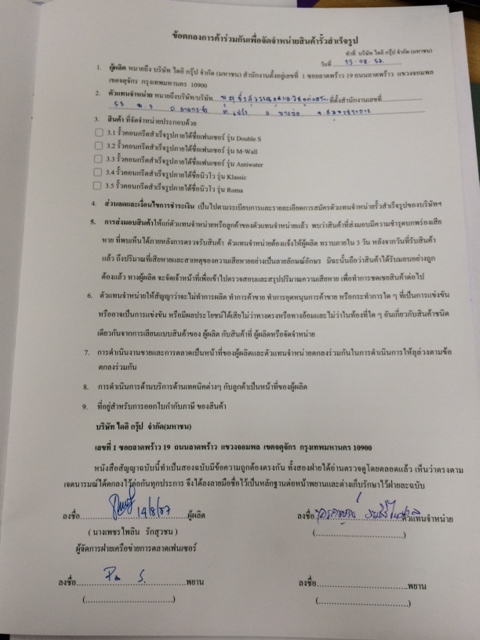 ข้อตกลงการค้าร่วมกันเพื่อจัดจำหน่ายสินค้ารั้วสำเร็จรูป
ทำที่ บริษัท ไดดิ กรุ๊ป จำกัด (มหาชน)
วันที่
1. ผู้ผลิต หมายถึง บริษัท ไดดิ กรุ๊ป จำกัด (มหาชน) สำนักงานตั้งอยู่เลขที่ 1 ซอยลาดพร้าว 19 ถนนลาดพร้าว แขวงจอมพล
เขตจตุจักร กรุงเทพมหานคร 10900
2. ตัวแทนจำหน่าย หมายถึงบริษัท/บริษัท ที่ตั้งสำนักงานเลขที่
3. สินค้า ที่จัดจำหน่ายประกอบด้วย
3.1 รั้วคอนกรีตสำเร็จรูปภายใต้ชื่อเฟนเซอร์ รุ่น Double S
3.2 รั้วคอนกรีตสำเร็จรูปภายใต้ชื่อเฟนเซอร์ รุ่น M-Wall
3.3 รั้วคอนกรีตสำเร็จรูปภายใต้ชื่อเฟนเซอร์ รุ่น Antiwater
3.4 รั้วคอนกรีตสำเร็จรูปภายใต้ชื่อนิวไว รุ่น Klassic
3.5 รั้วคอนกรีตสำเร็จรูปภายใต้ชื่อนิวไว รุ่น Roma
4. ส่วนลดและเงื่อนไขการชำระเงิน เป็นไปตามระเบียบการและรายละเอียดการสมัครตัวแทนจำหน่ายรั้วสำเร็จรูปของบริษัทฯ
5. การส่งมอบสินค้าให้แก่ตัวแทนจำหน่ายหรือลูกค้าของตัวแทนจำหน่ายแล้ว พบว่าสินค้าที่ส่งมอบมีความชำรุดบกพร่องเสีย
หาย ที่พบเห็นได้ภายหลังการตรวจรับสินค้า ตัวแทนจำหน่ายต้องแจ้งให้ผู้ผลิต ทราบภายใน 3 วัน หลังจากวันที่รับสินค้า
แล้ว ถึงปริมาณที่เสียหายและสาเหตุของความเสียหายอย่างเป็นลายลักษณ์อักษร มิฉะนั้นถือว่าสินค้าได้รับมอบอย่างถูก
ต้องแล้ว ทางผู้ผลิต จะจัดเจ้าหน้าที่เพื่อเข้าไปตรวจสอบและสรุปปริมาณความเสียหาย เพื่อทำการชดเชยสินค้าต่อไป
6. ตัวแทนจำหน่ายให้สัญญาว่าจะไม่ทำการผลิต ทำการค้าขาย ทำการอุดหนุนการค้าขาย หรือกระทำการใด ๆ ที่เป็นการแข่งขัน
หรืออาจเป็นการแข่งขัน หรือมีผลประโยชน์ได้เสียไม่ว่าทางตรงหรือทางอ้อมและไม่ว่าในท้องที่ใด ๆ อันเกี่ยวกับสินค้าชนิด
เดียวกันจากการเลียนแบบสินค้าของ ผู้ผลิต กับสินค้าที่ ผู้ผลิตหรือจัดจำหน่าย
7. การดำเนินงานขายและการตลาดเป็นหน้าที่ของผู้ผลิตและตัวแทนจำหน่ายตกลงร่วมกันในการดำเนินการให้ลุล่วงตามข้อ
ตกลงร่วมกัน
8. การดำเนินการด้านบริการด้านเทคนิคต่างๆ กับลูกค้าเป็นหน้าที่ของผู้ผลิต
9. ที่อยู่สำหรับการออกใบกำกับภาษี ของสินค้า
บริษัท ไดดิ กรุ๊ป จำกัด(มหาชน)
เลขที่ 1 ซอยลาดพร้าว 19 ถนนลาดพร้าว แขวงจอมพล เขตจตุจักร กรุงเทพมหานคร 10900
หนังสือสัญญาฉบับนี้ทำเป็นสองฉบับมีข้อความถูกต้องตรงกัน ทั้งสองฝ่ายได้อ่านตรวจดูโดยตลอดแล้ว เห็นว่าตรงตาม
เจตนารมณ์ได้ตกลงไว้ต่อกันทุกประการ จึงได้ลงลายมือชื่อไว้เป็นหลักฐานต่อหน้าพยานและต่างเก็บรักษาไว้ฝ่ายละฉบับ
ลงชื่อ 14/8/57 ผู้ผลิต ลงชื่อ ตัวแทนจำหน่าย
( นางเพชรไพลิน รักสุวชน )
ผู้จัดการฝ่ายเครือข่ายการตลาดเฟนเซอร์
ลงชื่อ พยาน ลงชื่อ พยาน